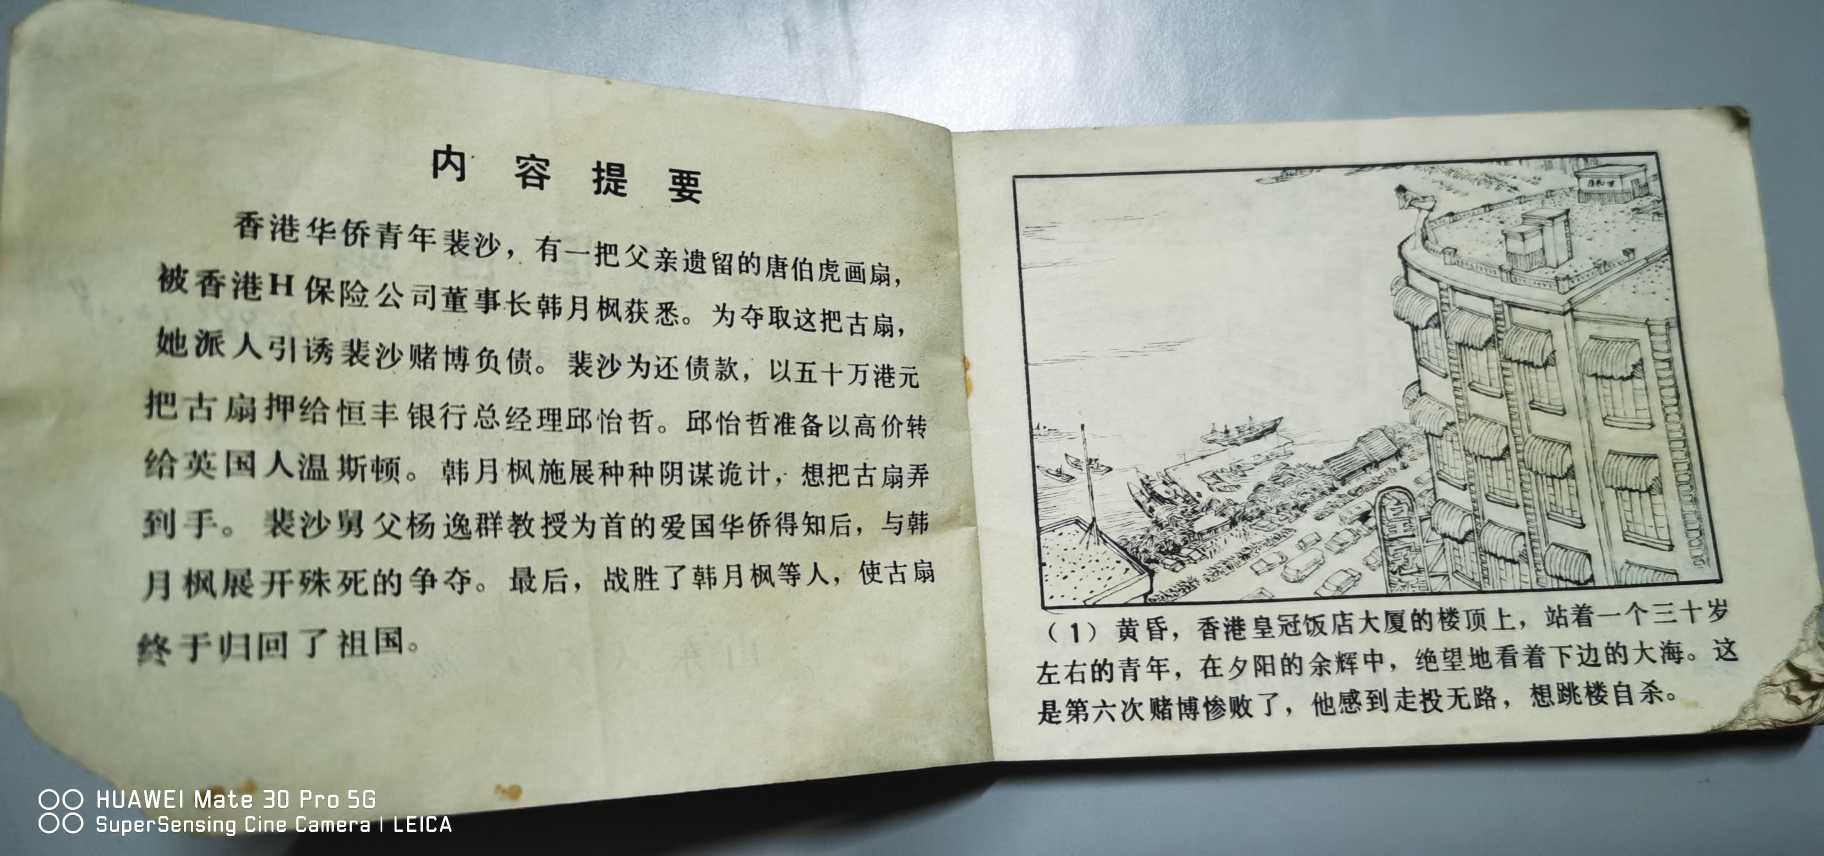 内容提要
香港华侨青年裴沙，有一把父亲遗留的唐伯虎画扇，
被香港H保险公司董事长韩月枫获悉。为夺取这把古扇，
她派人引诱裴沙赌博负债。裴沙为还债款，以五十万港元
把古扇押给恒丰银行总经理邱怡哲。邱怡哲准备以高价转
给英国人温斯顿。韩月枫施展种种阴谋诡计，想把古扇弄
到手。裴沙舅父杨逸群教授为首的爱国华侨得知后，与韩
月枫展开殊死的争夺。最后，战胜了韩月枫等人，使古扇
终于归回了祖国。
（1）黄昏，香港皇冠饭店大厦的楼顶上，站着一个三十岁
左右的青年，在夕阳的余辉中，绝望地看着下边的大海。这
是第六次赌博惨败了，他感到走投无路，想跳楼自杀。
HUAWEI Mate 30 Pro 5G
SuperSensing Cine Camera | LEICA